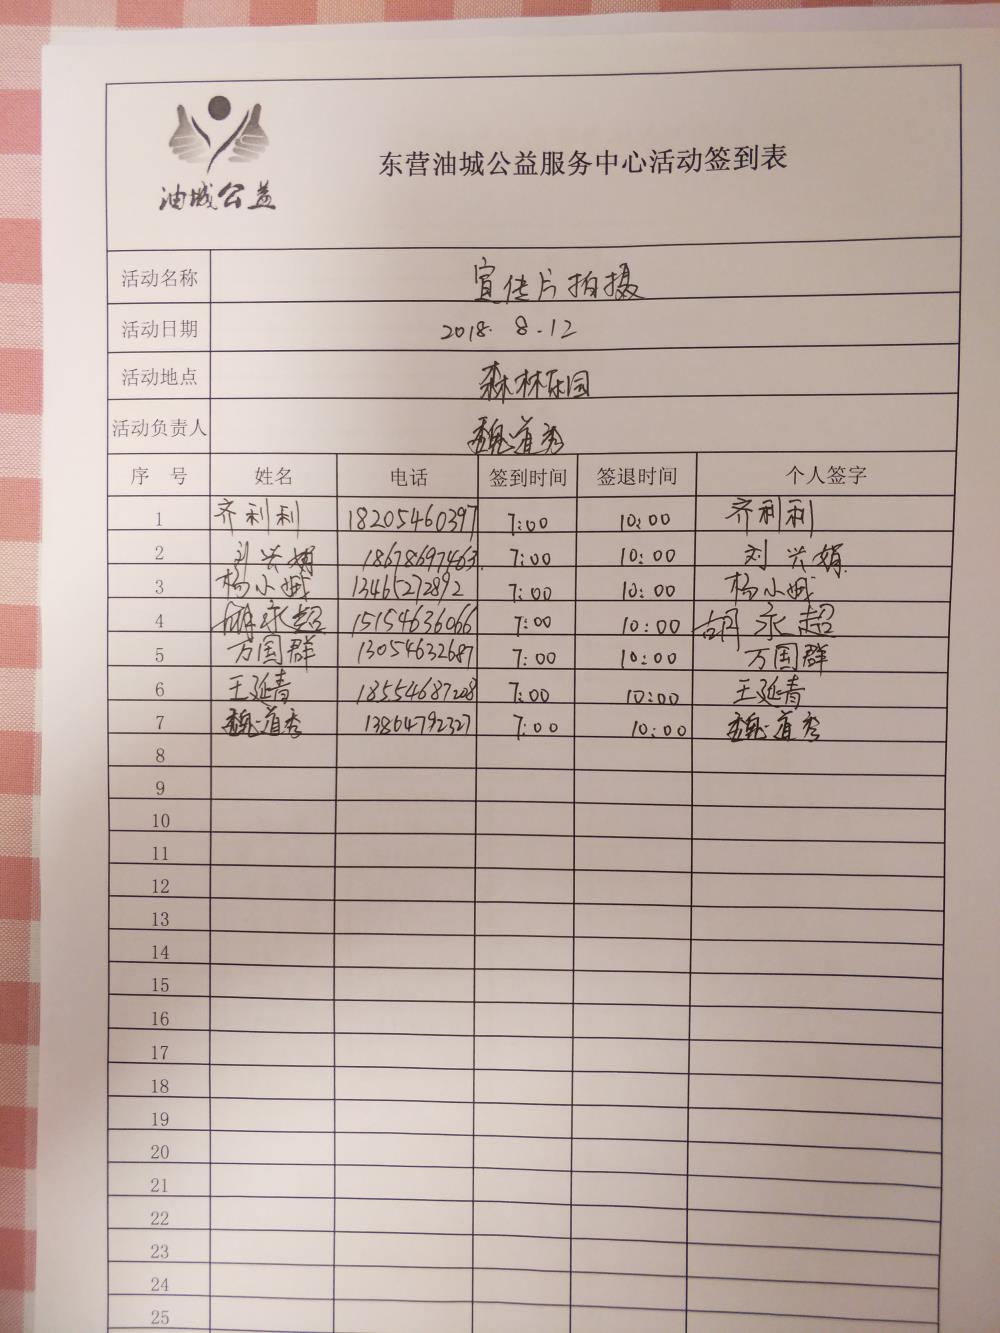 油城公益
东营油城公益服务中心活动签到表
活动名称 宣传片拍摄
活动日期 2018.8.12
活动地点 森林乐园
活动负责人 魏道秀
序号 姓名 电话 签到时间 签退时间 个人签字
1 齐利利 18205460397 7:00 10:00 齐利利
2 刘兴娟 18678697463. 7:00 10:00 刘兴娟.
3 杨小娥 13465272892 7:00 10:00 杨小娥
4 胡永超 15154636066 7:00 10:00 胡永超
5 万国群 13054632687 7:00 10:00 万国群
6 王延青 18554687208 7:00 10:00 王延青
7 魏道秀 13864792327 7:00 10:00 魏道秀
8
9
10
11
12
13
14
15
16
17
18
19
20
21
22
23
24
25